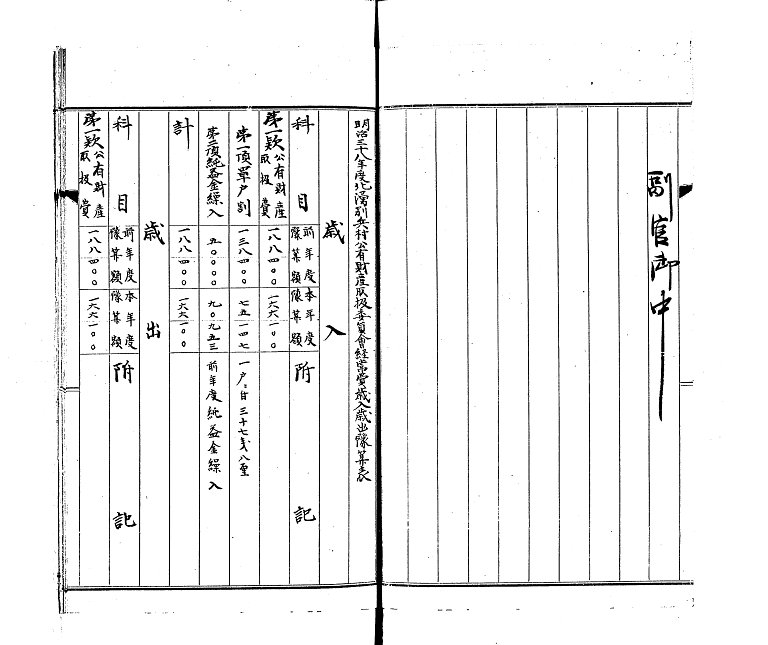 副官御中
明治三十八年度北湧別兵村公有財産取扱委員會経常費歳入歳出豫算表
歳入
科目 前年度豫算額 本年度豫算額 附記
第一款公有財産取扱費 一八八四〇〇 一六六一〇〇
第一項單戸割 一三八四〇〇 七五一四七 一戸ニ付三十七戋八厘
第二項純益金繰入 五〇〇〇〇 九〇九五三 前年度純益金繰入
計 一八八四〇〇 一六六一〇〇
歳出
科目 前年度豫算額 本年度豫算額 附記
第一款公有財産取扱費 一八八四〇〇 一六六一〇〇